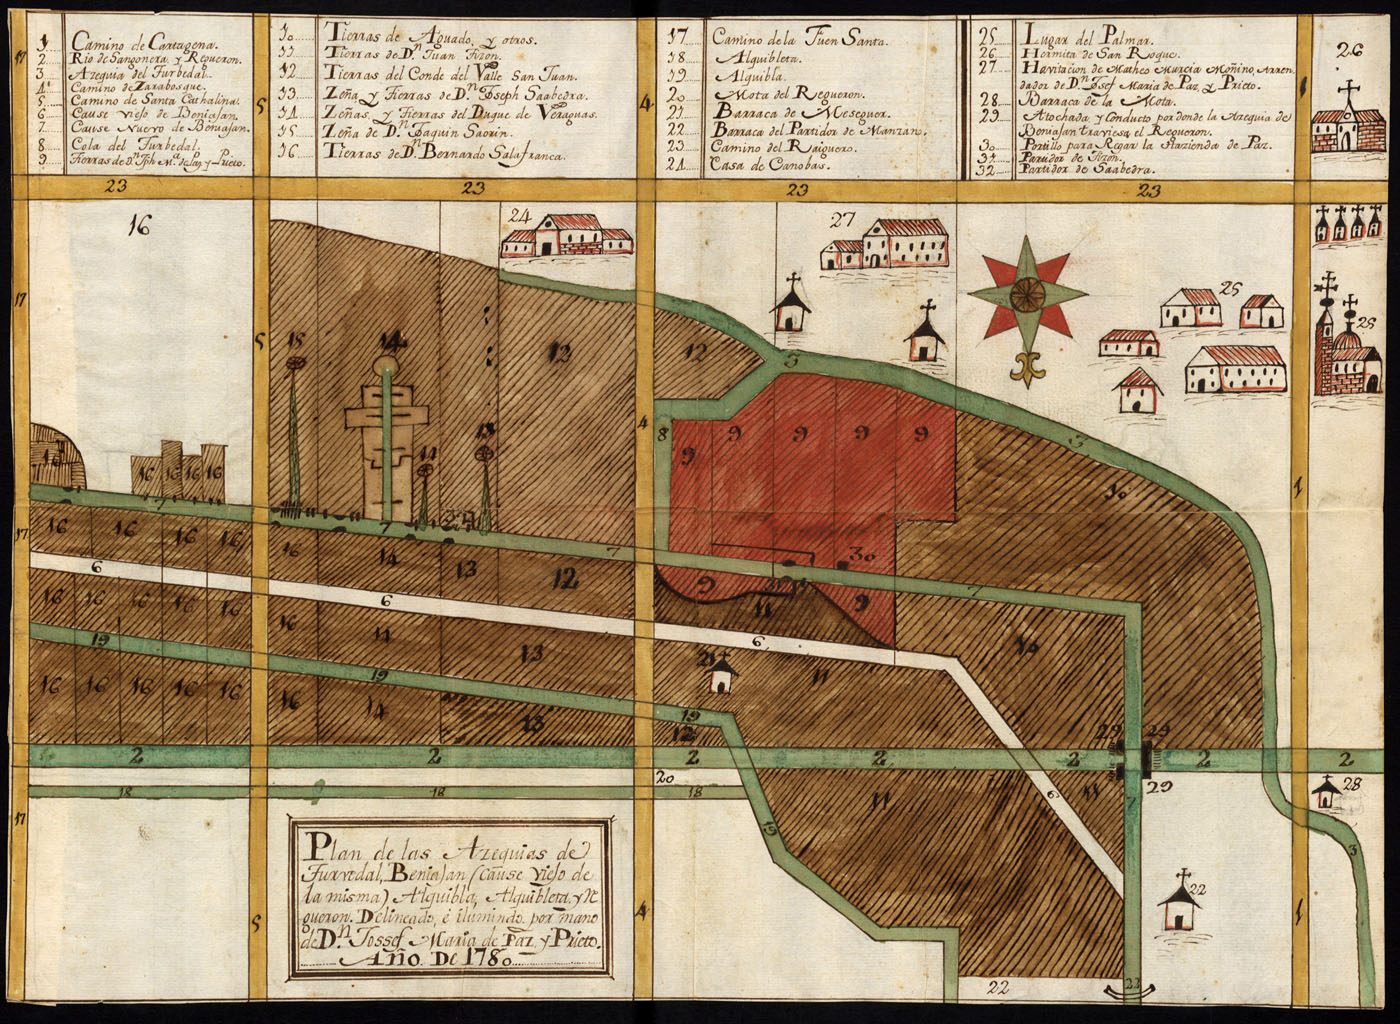 1 Camino de Cartagena.
2 Rio de Sangonera, y Regueron.
3 Azequia del Turbedal.
4 Camino de Zarabosque.
5 Camino de Santa Cathalina.
6 Cause viejo de Beniajan.
7 Cause Nuevo de Beniajan.
8 Cola del Turbedal.
9 Tierras de Dn. Jph Ma. de Paz, y Prieto.
10 Tierras de Aguado, y otros.
11 Tierras de Dn. Juan Tizon.
12 Tierras del Conde del Valle San Juan.
13 Zeña, y Tierras de Dn. Joseph Saabedra.
14 Zeñas, y Tierras del Duque de Veraguas.
15 Zeña de Dn. Joaquin Saorin.
16 Tierras de Dn. Bernardo Salafranca.
17 Camino de la Fuen Santa.
18 Alquibleta.
19 Alquibla.
20 Mota del Regueron.
21 Barraca de Meseguer.
22 Barraca del Partidor de Manzano.
23 Camino del Raiguero.
24 Casa de Canobas.
25 Lugar del Palmar.
26 Hermita de San Roque.
27 Havitacion de Matheo Murcia Moñino, Arren-
dador de Dn. Josef Maria de Paz, y Prieto.
28 Barraca de la Mota.
29 Atochada, y Conducto por donde la Azequia de
Beniajan traviesa el Regueron.
30 Portillo para Regar la Hazienda de Paz.
31 Partidor de Tizon.
32 Partidor de Saabedra.
26
23 23 23 23
16
24
27
25
25
15 14 12 12
14 13
9 9 9 9 9
10
16 16 16 16 16
30
28
22
Plan de las Azequias de
Turvedal, Beniajan (cause viejo de
la misma) Alquibla, Alquibleta, y Re
gueron. Delineado, è iluminado por mano
de Dn. Jossef Maria de Paz, y Prieto.
Año De 1780
22